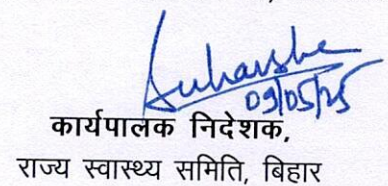 Suharsha
09/05/25
कार्यपालक निदेशक,
राज्य स्वास्थ्य समिति, बिहार